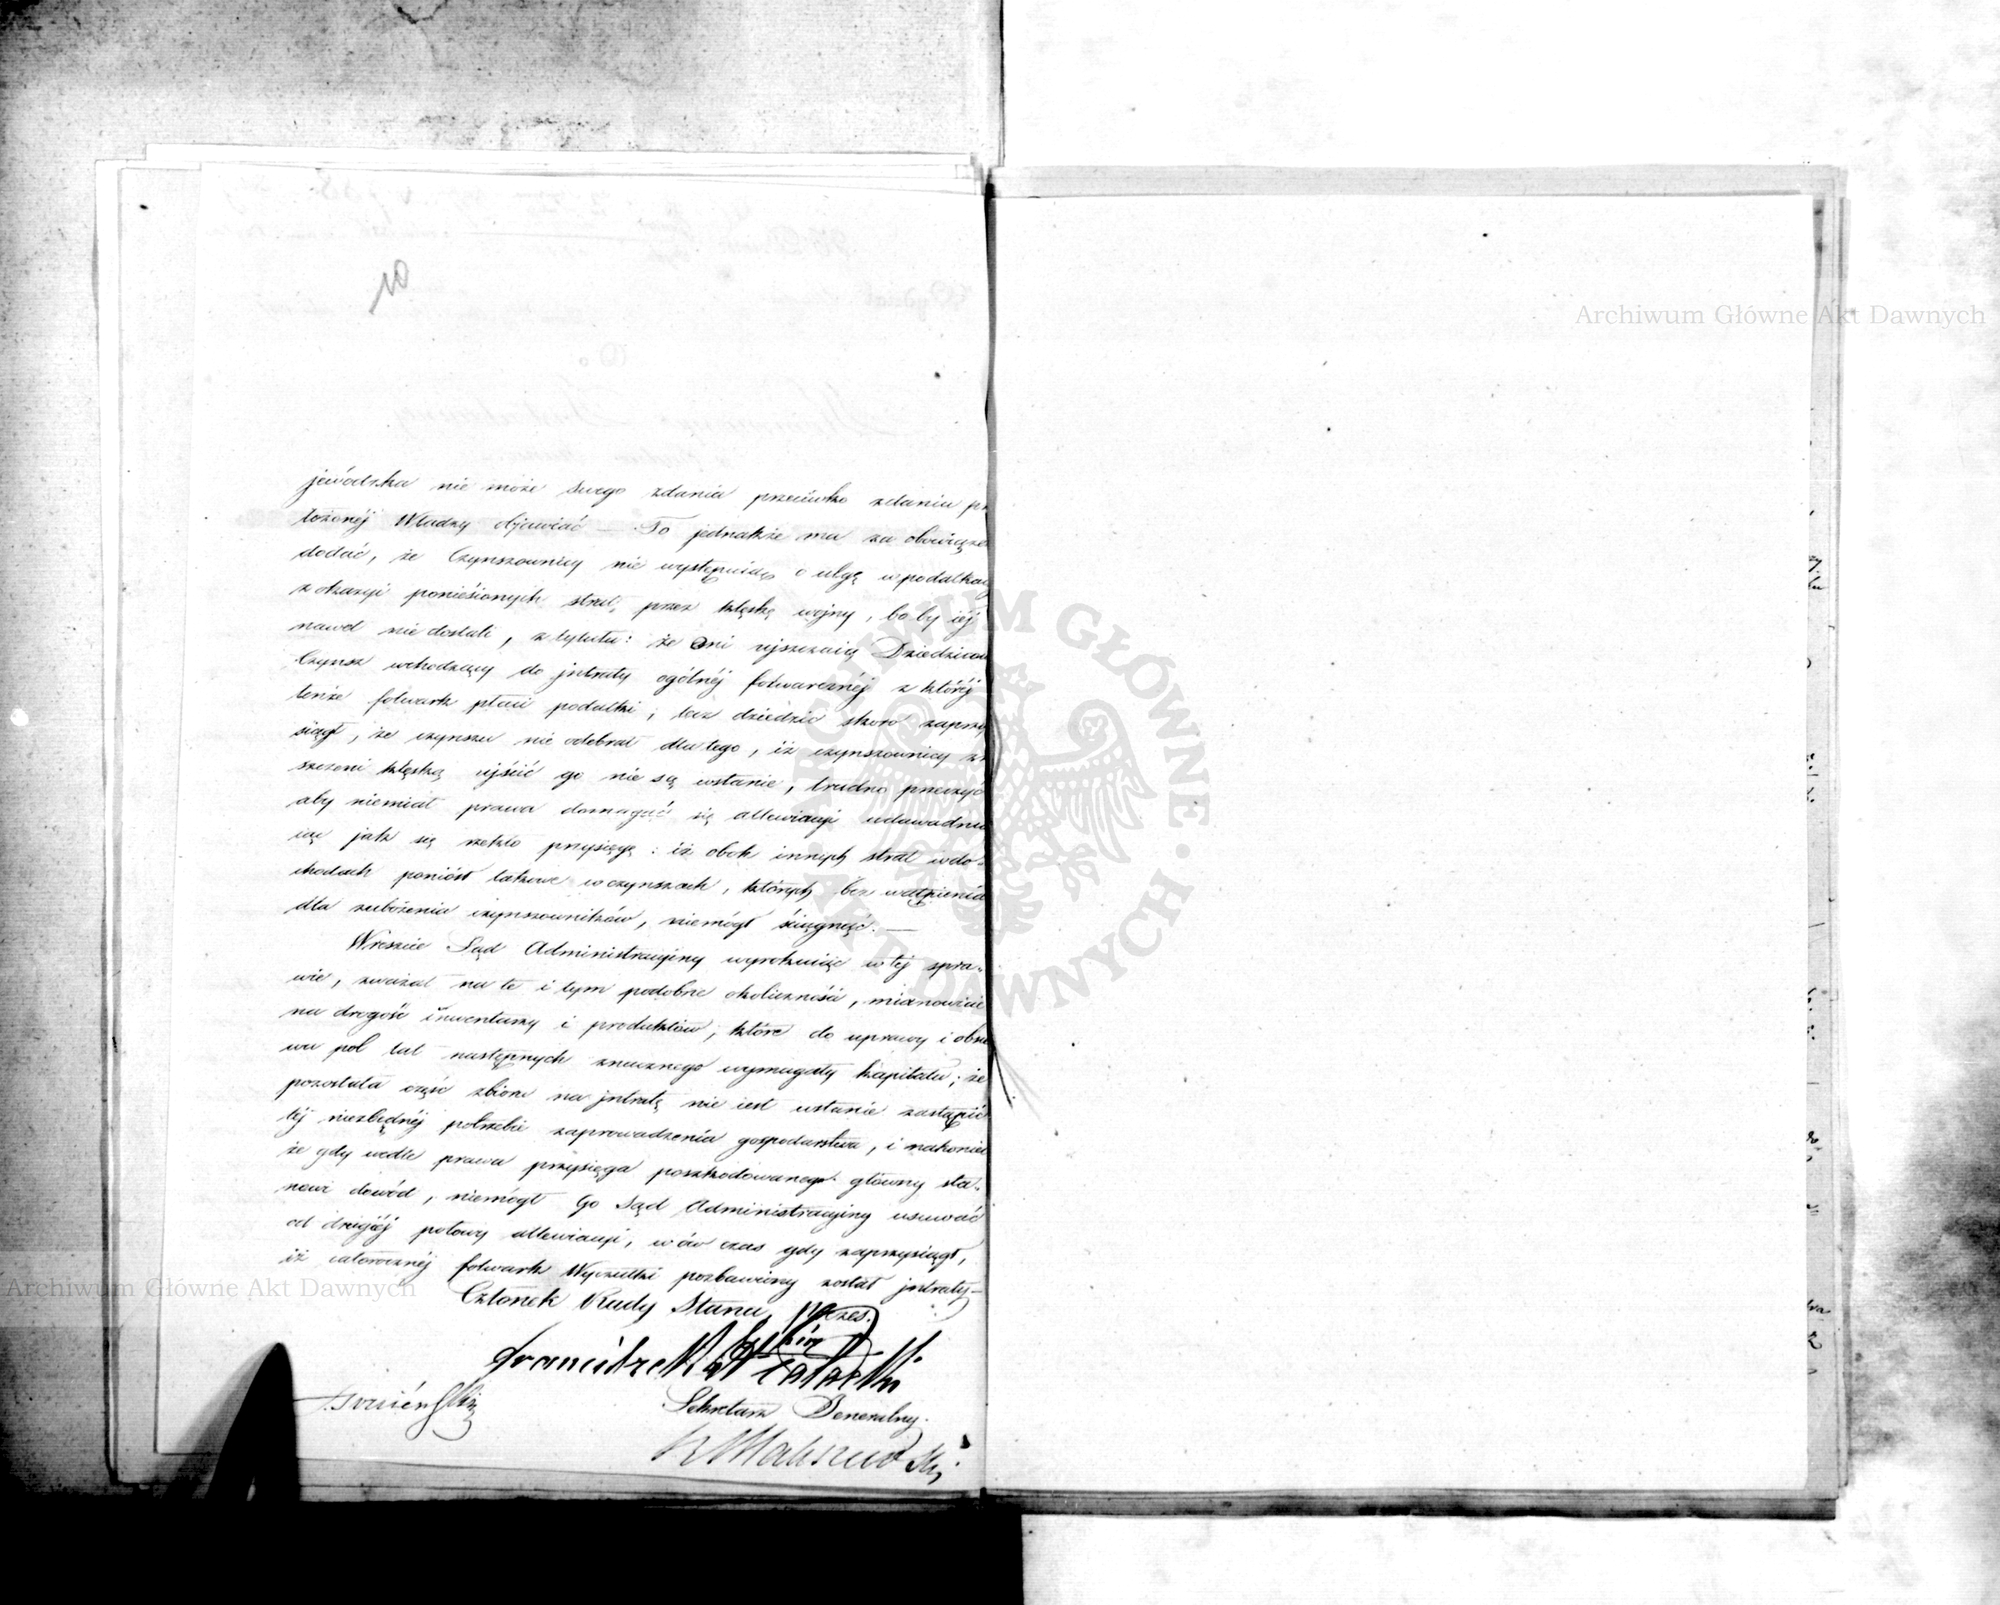 10
jewódzka nie może swego zdania przeciwko zdaniu prze
łożonéj Władzy objawiać — To jednakże ma za obowiązek
dodać, że Czynszownicy nie występuią o ulgę w podatkach
z okazyi poniesionych strat, przez klęskę wojny, bo by iéj
nawet nie dostali, z tytułu: że oni ujszczaią Dziedzicowi
Czynsz wchodzący do jntraty ogólnéj folwarcznéj z któréj
tenże folwark płaci podatki; lecz dziedzic skoro zaprzy
siągł, że czynszu nie odebrał dla tego, iż czynszownicy zni
szczeni klęską ujścić go nie są wstanie, trudno przeczyć
aby niemiał prawa domagać się allewiacyi udowadnia
iąc jak się rzekło przysięgą: iż obok innych strat w do-
chodach poniósł takowe w czynszach, których bez wątpienia
dla zubożenia czynszowników, niemógł ściągnąć. —
Wreszcie Sąd Administracyjny wyrokuiąc w téj spra-
wie, zważał na te i tym podobne okoliczności, mianowicie
na drogość inwentarzy i produktów, które do uprawy i obsie
wu pól lat następnych znacznego wymagały kapitału; że
pozostała część zbioru na jntratę nie iest wstanie zastąpić
téj niezbędnéj potrzebie zaprowadzenia gospodarstwa, i nakoniec
że gdy wedle prawa przysięga poszkodowanego główny sta-
nowi dowód, niemógł Go Sąd Administracyjny usuwać
od drugiéj połowy allewiacyi, w ów czas gdy zaprzysiągł,
iż całorocznéj folwark Wyczułki pozbawiony został jntraty —
Członek Rady Stanu, Prezes.
Franciszek
Sekretarz Generalny.
Archiwum Główne Akt Dawnych
Archiwum Główne Akt Dawnych
ARCHIWUM GŁÓWNE · AKT DAWNYCH ·